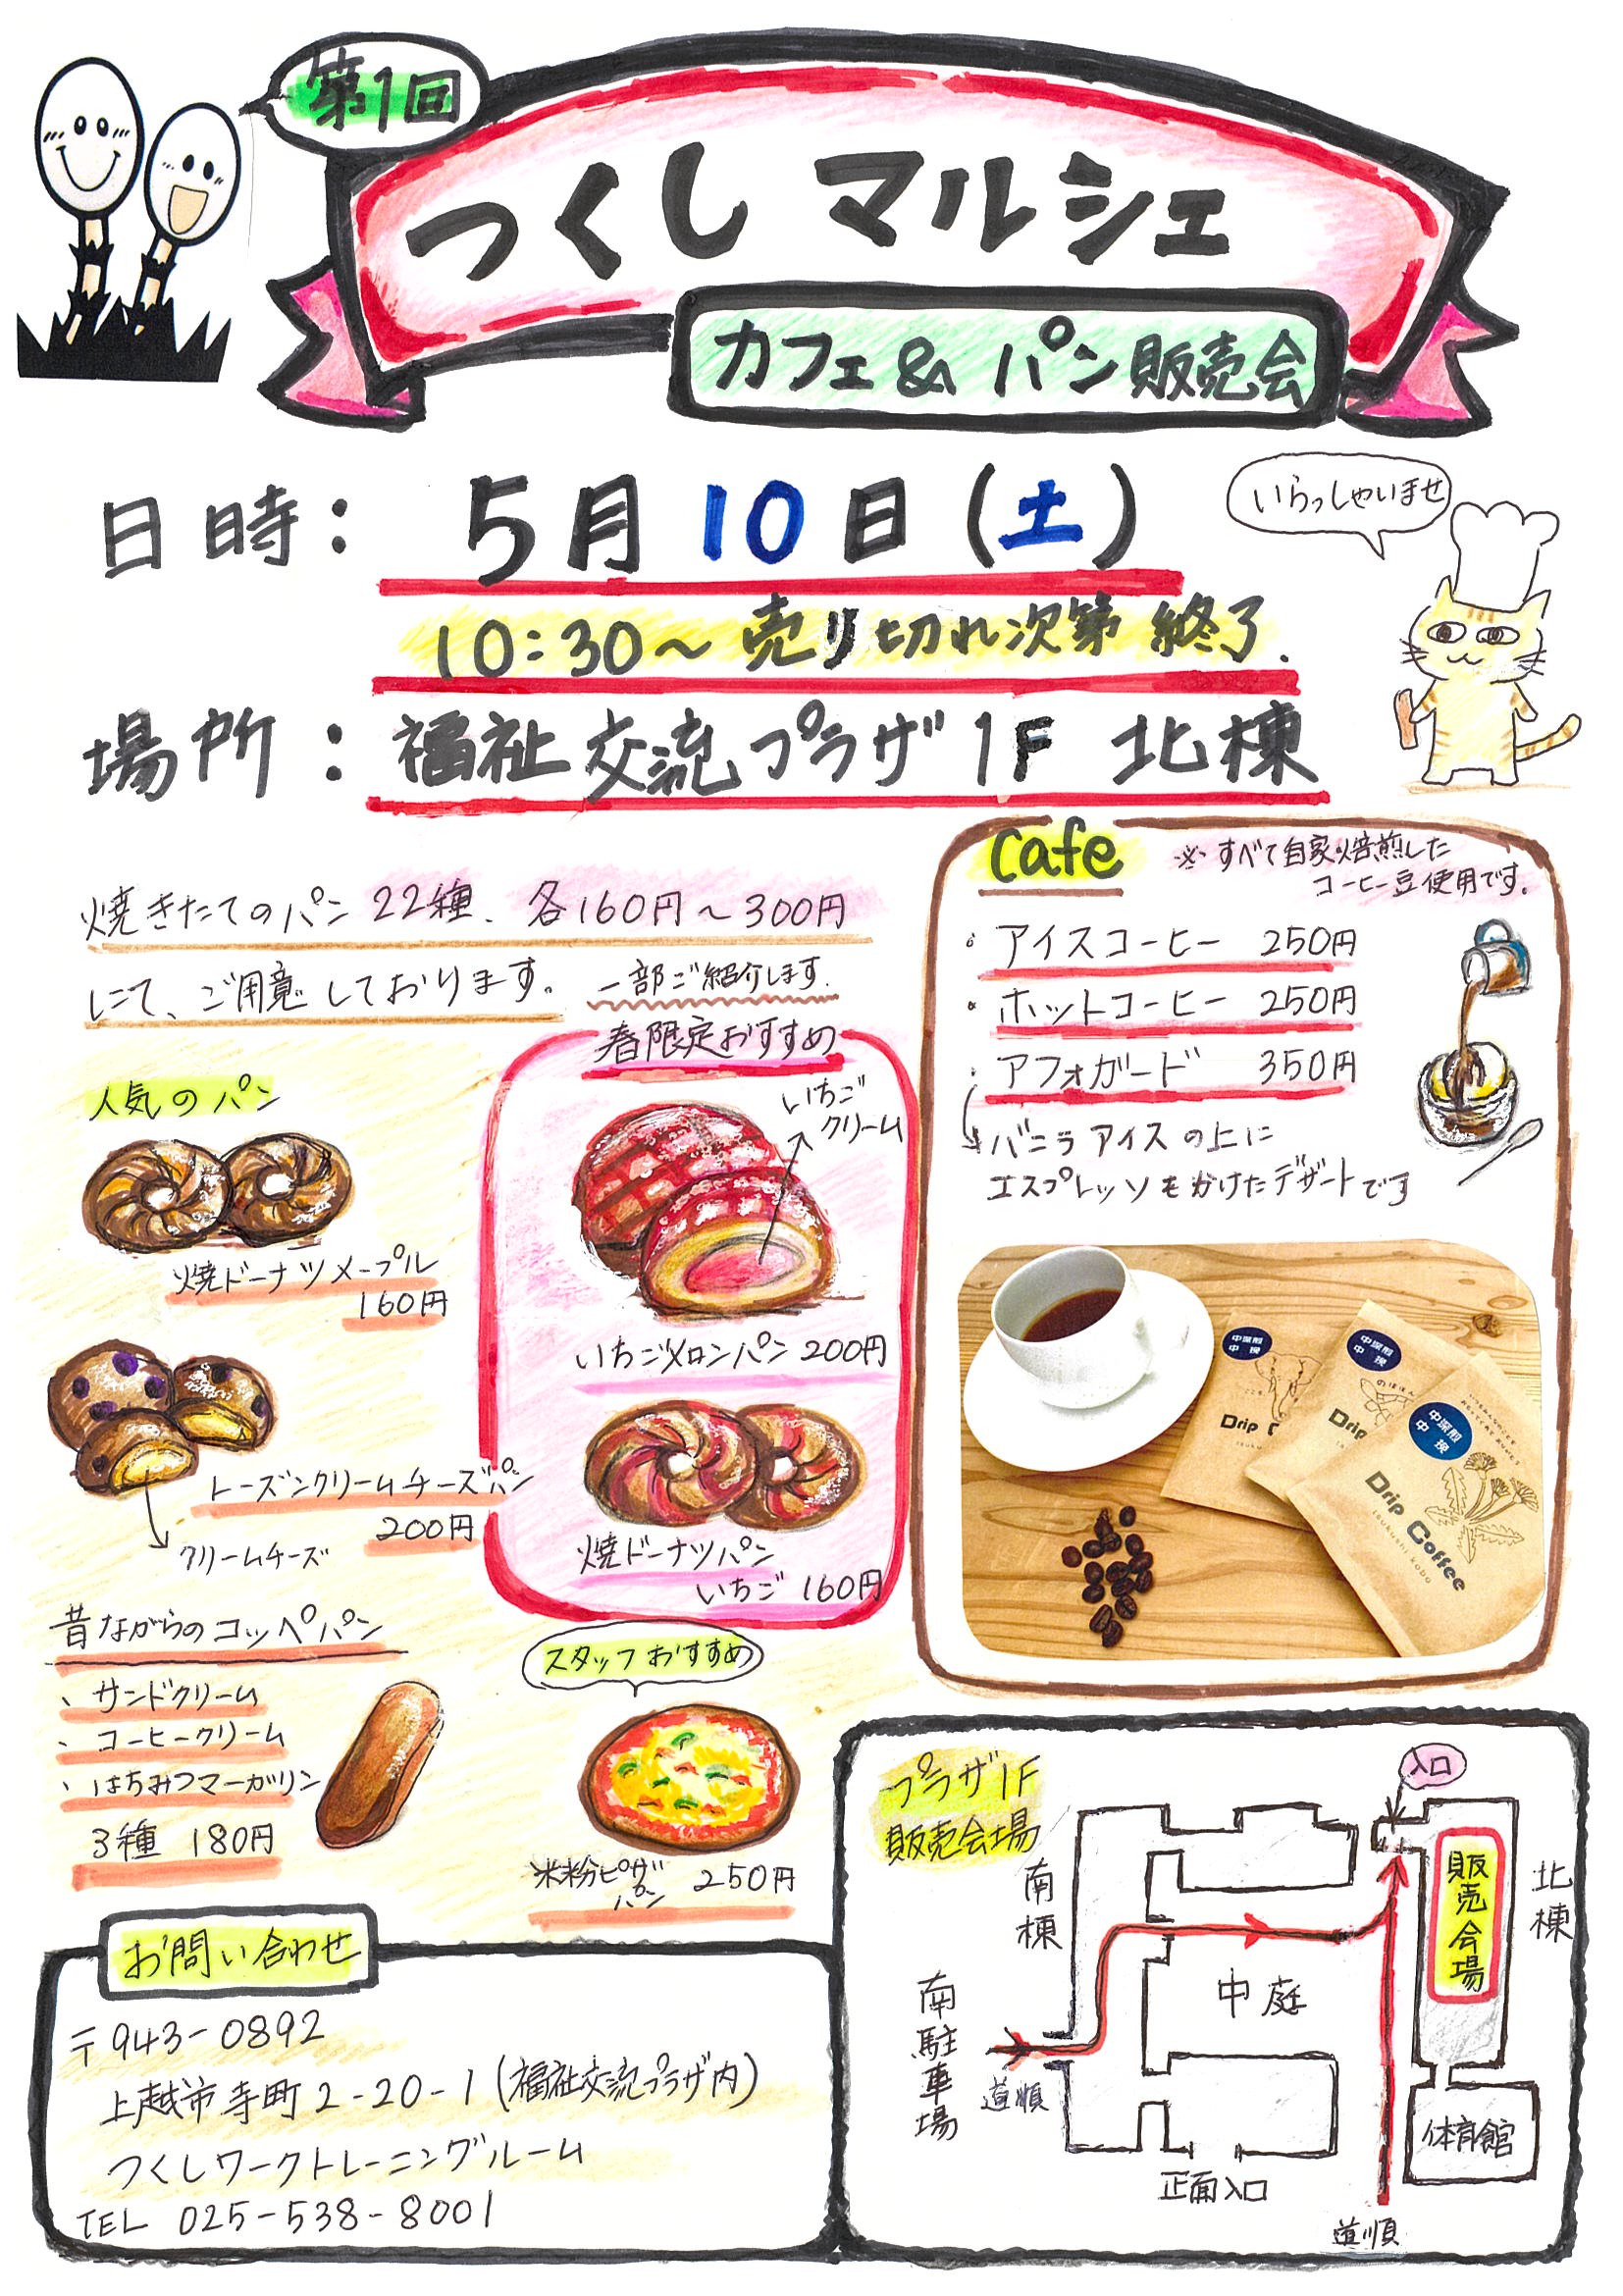 第1回
つくしマルシェ
カフェ&パン販売会
日時: 5月10日(土)
10:30〜売り切れ次第 終了.
場所:福祉交流プラザ1F 北棟
いらっしゃいませ
焼きたてのパン22種、各160円〜300円
にて、ご用意しております。一部ご紹介します.
人気のパン
焼ドーナツメープル
160円
レーズンクリームチーズパン
200円
クリームチーズ
春限定おすすめ
いちご
クリーム
いちごメロンパン 200円
焼ドーナツパン
いちご 160円
昔ながらのコッペパン
、サンドクリーム
、コーヒークリーム
、はちみつマーガリン
3種 180円
スタッフおすすめ
米粉ピザ
パン 250円
cafe
※すべて自家焙煎した
コーヒー豆使用です。
・アイスコーヒー 250円
・ホットコーヒー 250円
・アフォガード 350円
バニラアイスの上に
エスプレッソをかけたデザートです
中深煎
中挽
Drip
中深煎
中挽
のほほん
Drip
中深煎
中挽
Drip Coffee
tsukushi kobo
お問い合わせ
〒943-0892
上越市寺町2-20-1(福祉交流プラザ内)
つくしワークトレーニングルーム
TEL 025-538-8001
プラザ1F
販売会場
入口
南棟
北棟
販売会場
中庭
南駐車場
道順
体育館
正面入口
道順